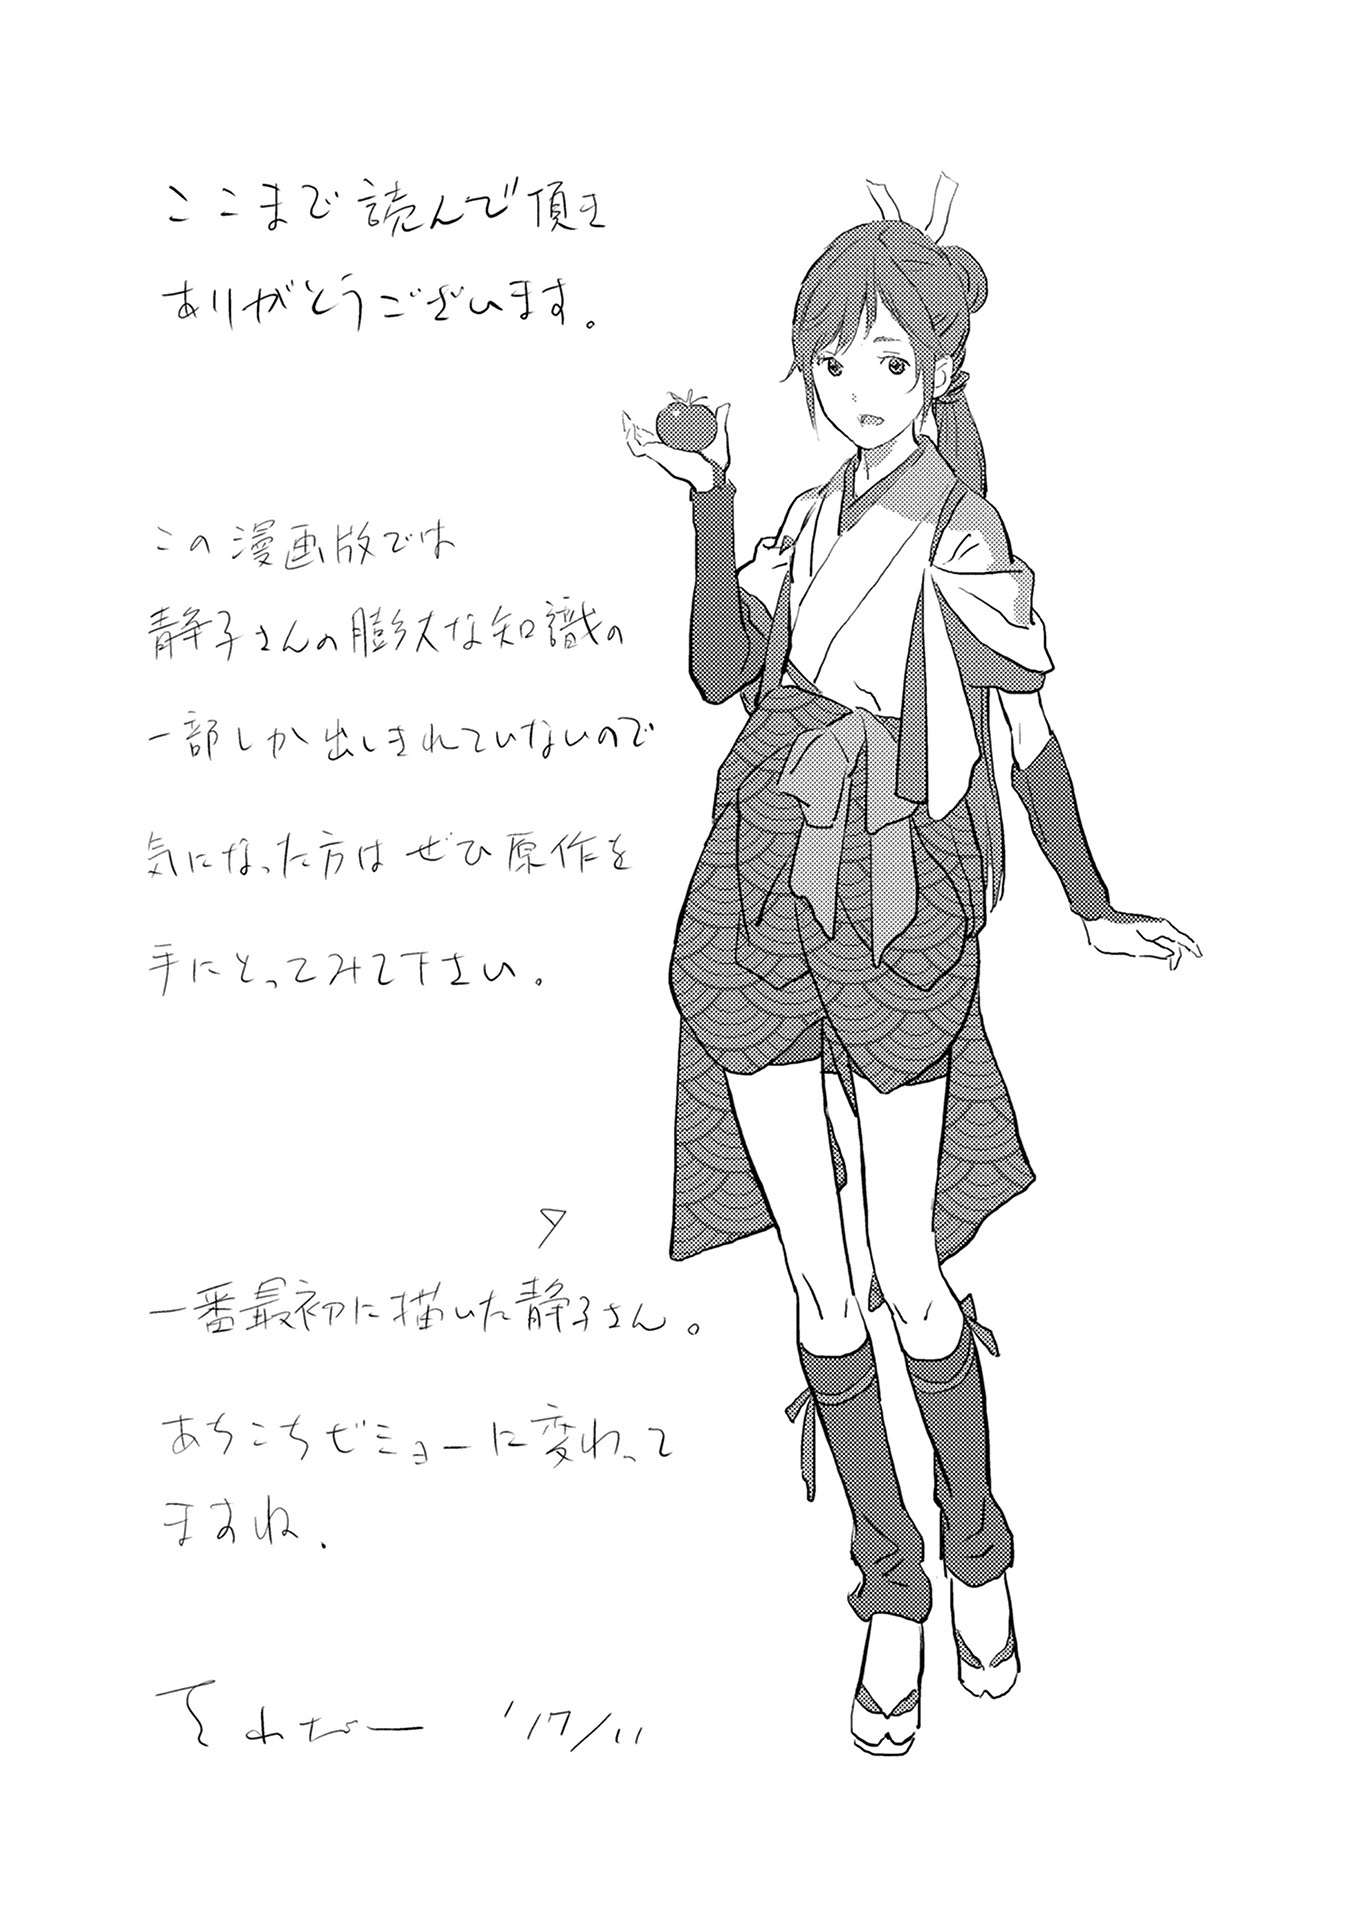 ここまで読んで頂き
ありがとうございます。
この漫画版では
静子さんの膨大な知識の
一部しか出しきれていないので
気になった方はぜひ原作を
手にとってみて下さい。
一番最初に描いた静子さん。
あちこちビミョーに変わって
ますね、
'17/11